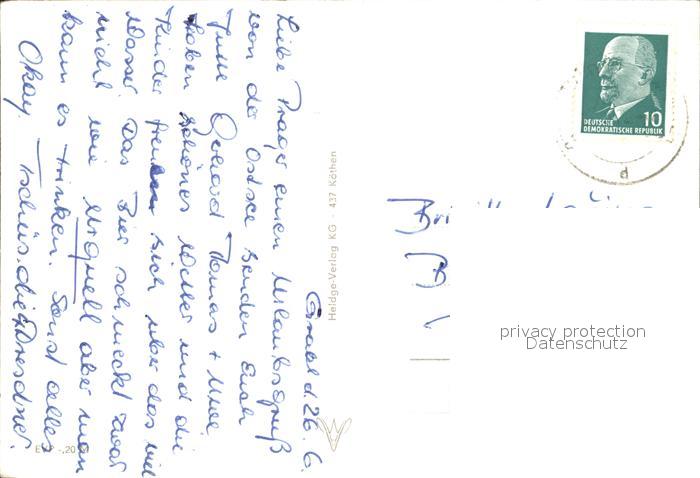 Graal d. 26. 6.
Liebe Prager einen Urlaubsgruß
von der Ostsee senden Euch
Gerhard Tomas + Uwe.
haben schönes Wetter und die
Kinder freuen sich über das viel
Wasser. Das Bier schmeckt zwar
nicht wie Urquell aber man
kann es trinken. Sonst alles
Okay. Tschüs. die 4 Dresdner.
Heldge-Verlag KG · 437 Köthen
DEUTSCHE
DEMOKRATISCHE REPUBLIK
10
privacy protection
Datenschutz